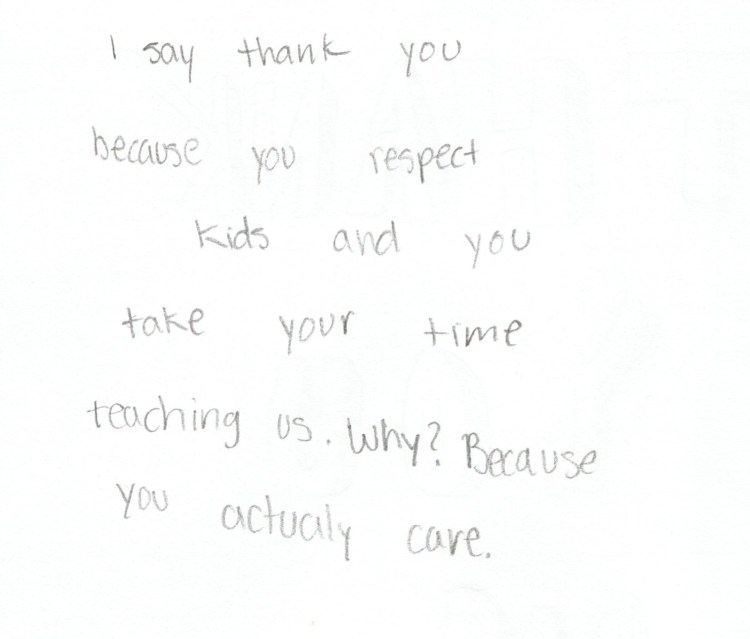 I say thank you
because you respect
kids and you
take your time
teaching us. Why? Because
you actualy care.